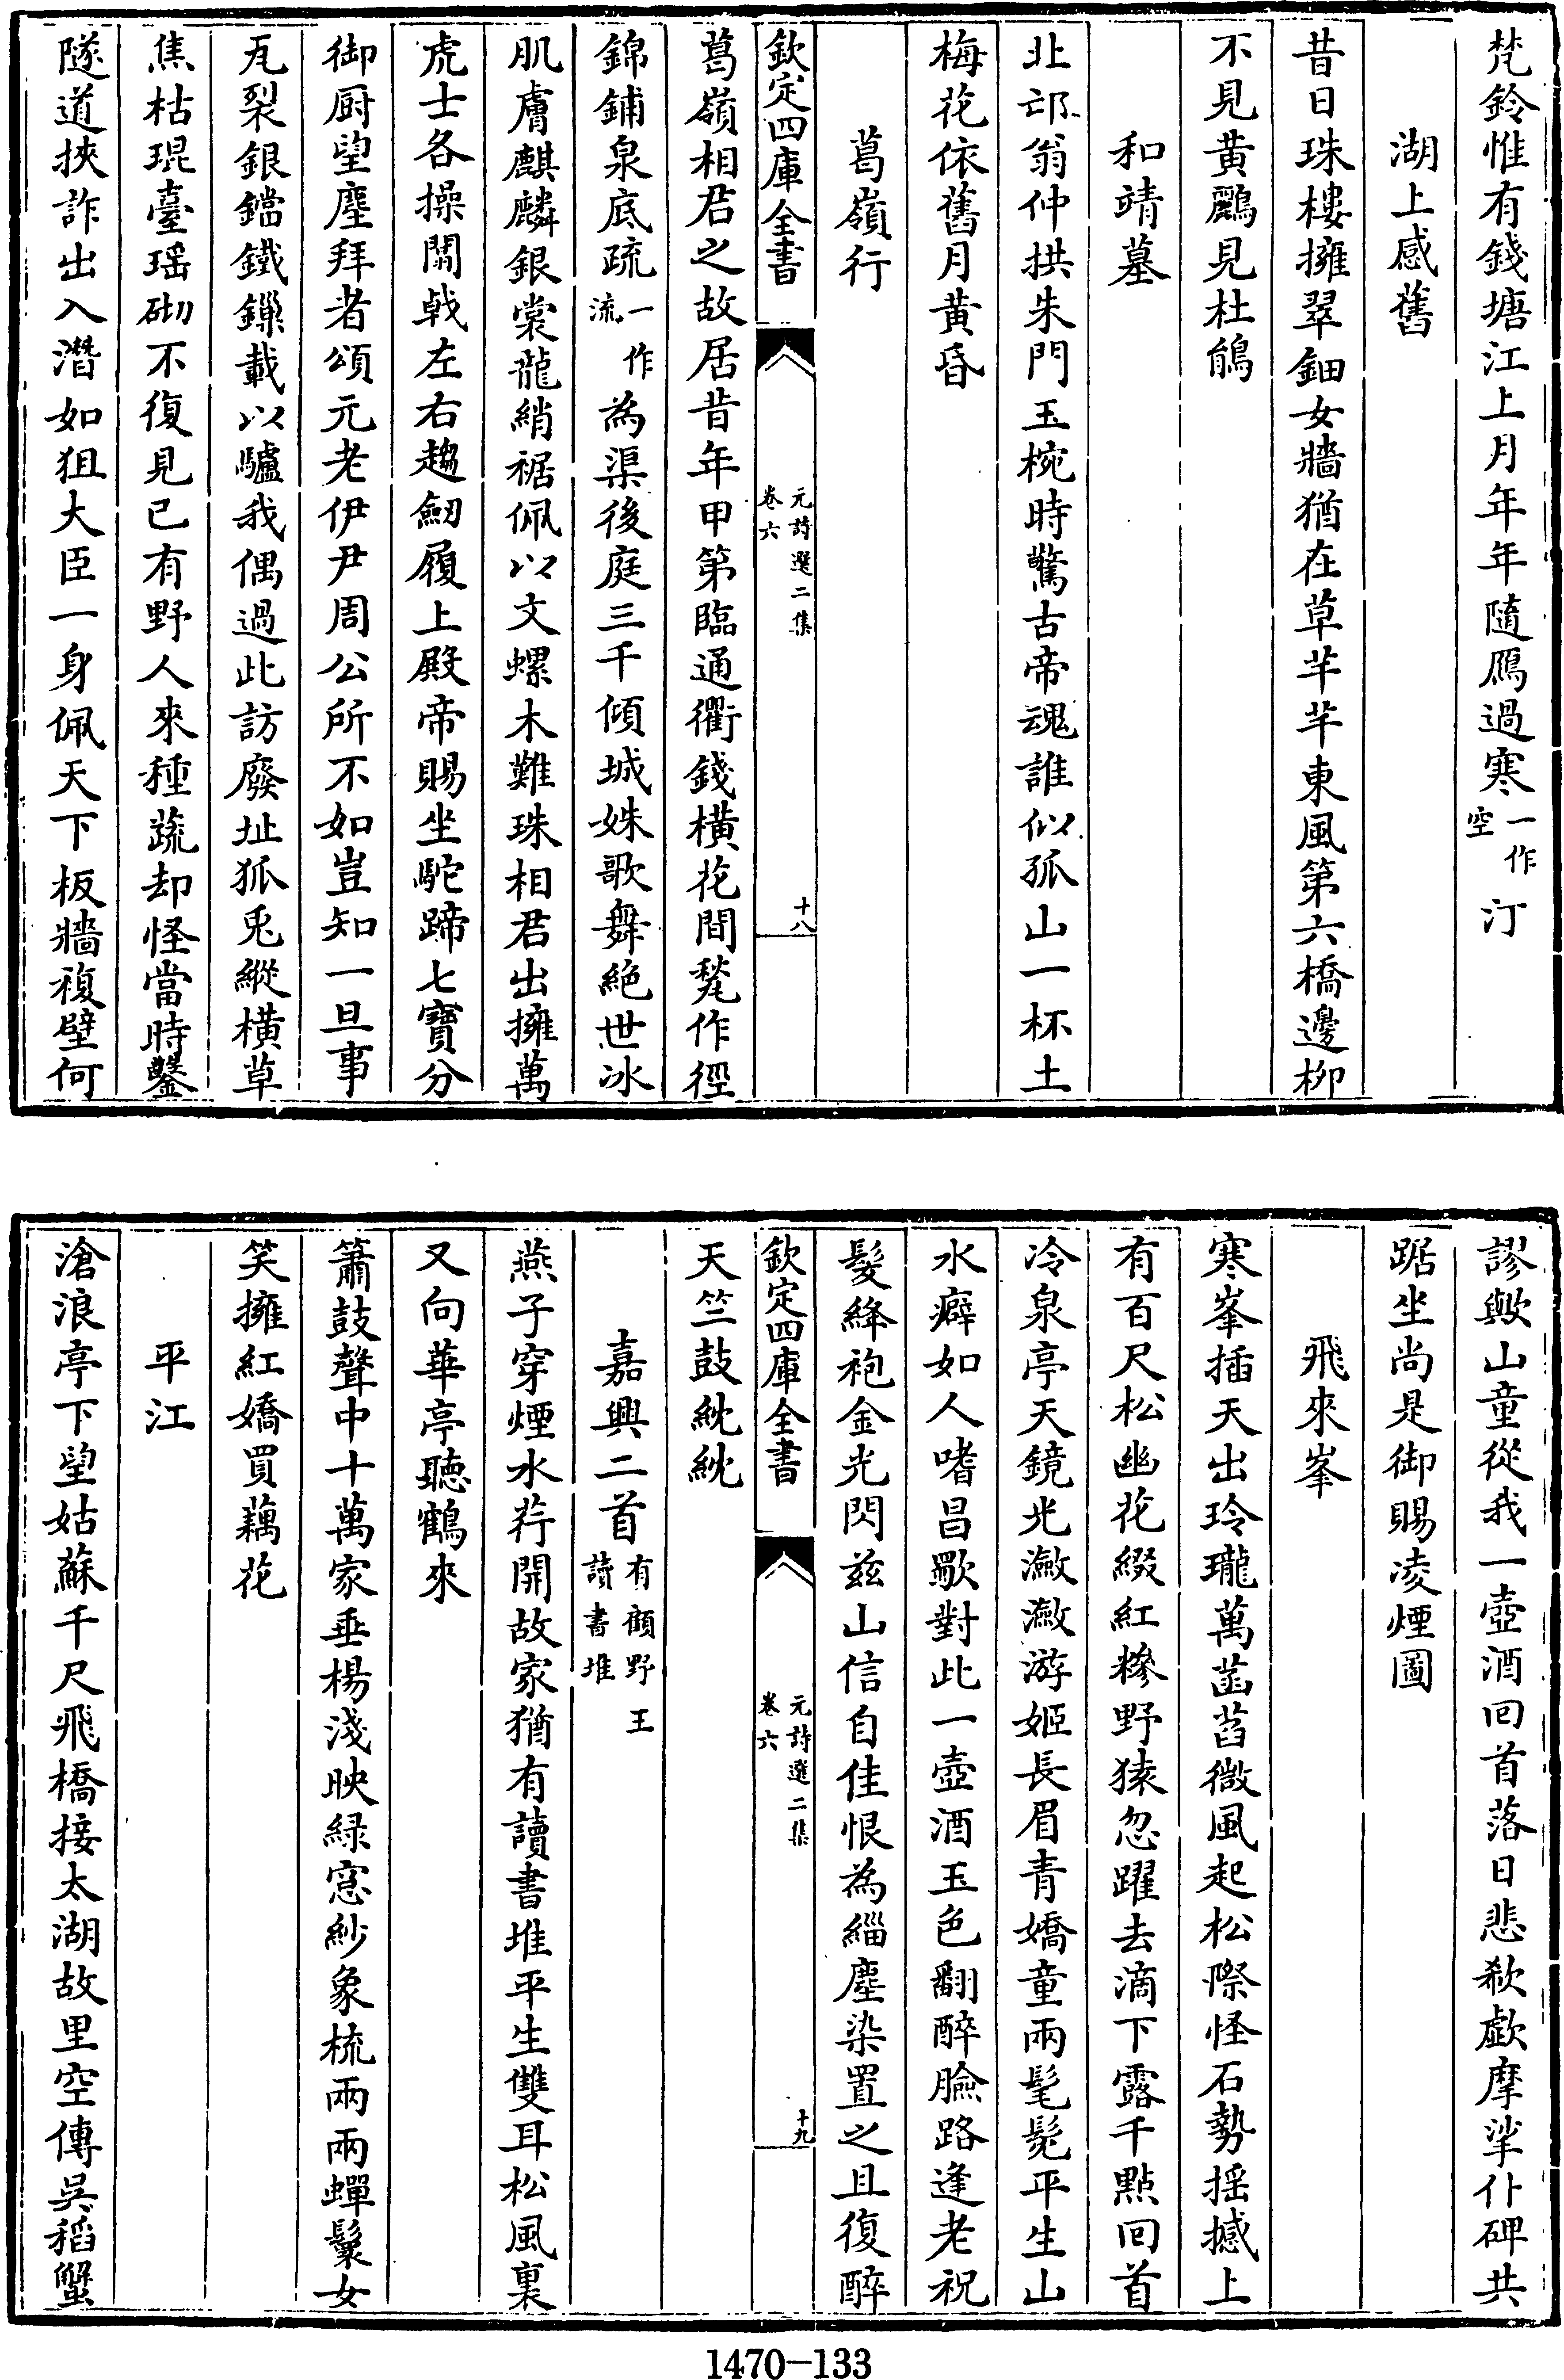 梵鈴惟有錢塘江上月年年隨鴈過寒一作空汀
湖上感舊
昔日珠樓擁翠鈿女牆猶在草芊芊東風第六橋邊柳
不見黄鸝見杜鵑
和靖墓
北邙翁仲拱朱門玉椀時驚古帝魂誰似孤山一杯土
梅花依舊月黄昏
葛嶺行
欽定四庫全書
元詩選二集
卷六
十八
葛嶺相君之故居昔年甲第臨通衢錢橫花間甃作徑
錦鋪泉底疏一作流為渠後庭三千傾城姝歌舞絶世冰
肌膚麒麟銀裳龍綃裾佩以文螺木難珠相君出擁萬
虎士各操闟戟左右趨劒履上殿帝賜坐駝蹄七寶分
御厨望塵拜者頌元老伊尹周公所不如豈知一旦事
瓦裂銀鐺鐵鏁載以驢我偶過此訪廢址狐兎縱橫草
焦枯琨臺瑶砌不復見已有野人來種蔬却怪當時鑿
隧道挾詐出入潛如狙大臣一身佩天下板牆複壁何
謬歟山童從我一壺酒回首落日悲欷歔摩挲仆碑共
踞坐尚是御賜凌煙圖
飛來峯
寒峯插天出玲瓏萬菡萏微風起松際怪石勢揺撼上
有百尺松幽花綴紅糝野猿忽躍去滴下露千點回首
冷泉亭天鏡光瀲瀲游姬長眉青嬌童兩髦髧平生山
水癖如人嗜昌歜對此一壺酒玉色翻醉臉路逢老祝
髮絳袍金光閃兹山信自佳恨為緇塵染置之且復醉
欽定四庫全書
元詩選二集
卷六
十九
天竺鼓紞紞
嘉興二首有顧野王讀書堆
燕子穿煙水荇開故家猶有讀書堆平生雙耳松風裏
又向華亭聽鶴來
簫鼓聲中十萬家垂楊淺映緑窓紗象梳兩兩蟬鬟女
笑擁紅嬌買藕花
平江
滄浪亭下望姑蘇千尺飛橋接太湖故里空傳吳稻蟹
1470-133